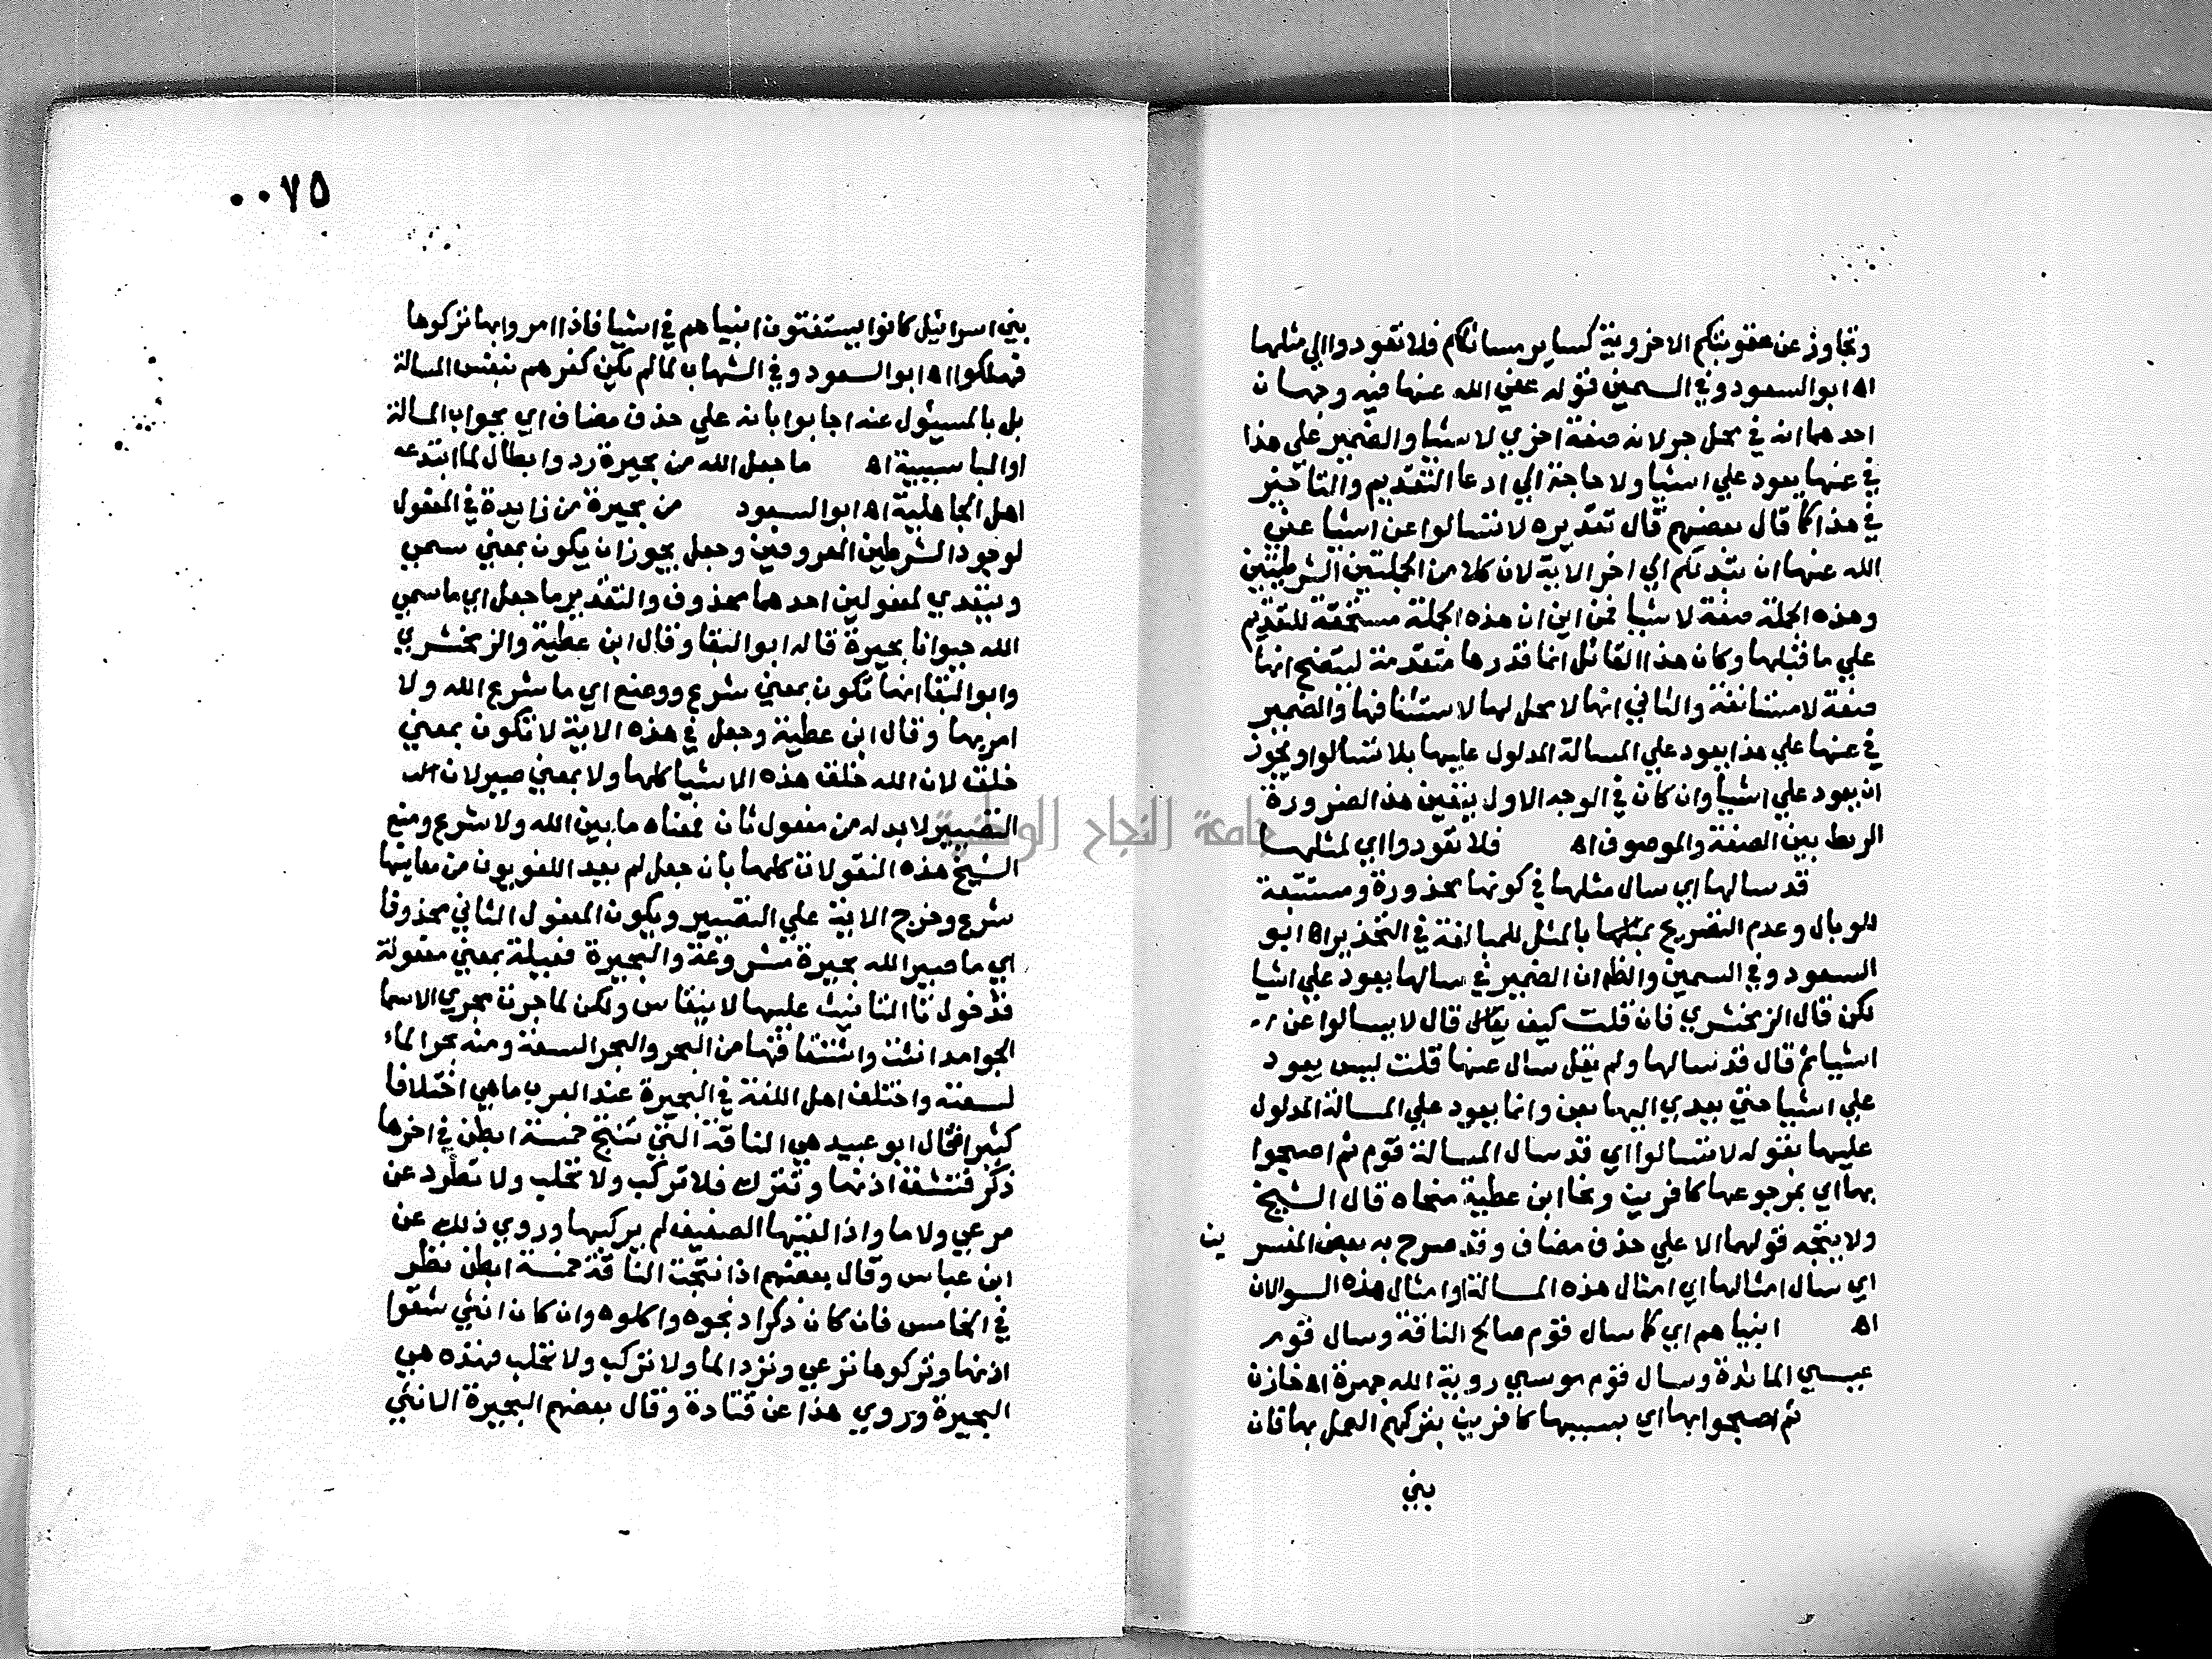 وتجاوز عن عقوبتكم الاخروية كساير مساتكم فلا تعودوا الي مثلها
اه ابو السعود وفي السمين قوله عفي الله عنها فيه وجهان
احدهما انه في محل جر لانه صفة اخري لاشيا والضمير علي هذا
في عنها يعود علي اشيا ولا حاجة الي ادعا التقديم والتاخير
في هذا كما قال بعضهم قال تقديره لا تسالوا عن اشيا عفي
الله عنها ان تبد لكم الي اخر الاية لان كلا من الجملتين الشرطيتين
وهذه الجملة صفة لاشيا فمن اين ان هذه الجملة مستحقة للتقديم
علي ما قبلها وكان هذا القائل انما قدرها متقدمة ليتضح انها
صفة لا مستانفة والثاني انها لا محل لها لاستئنافها والضمير
في عنها علي هذا يعود علي المسالة المدلول عليها بلا تسالوا ويجوز
ان يعود علي اشيا وان كان في الوجه الاول يتعين هذا لضرورة
الربط بين الصفة والموصوف اه فلا تعودوا اي لمثلها
قد سالها اي سال مثلها في كونها محذورة ومستتبعة
للوبال وعدم التصريح بمثلها بالمثل للمبالغة في التحذير اه ابو
السعود وفي السمين والظ ان الضمير في سالها يعود علي اشيا
لكن قال الزمخشري فان قلت كيف يقال قال لا يسالوا عن
اشيا ثم قال قد سالها ولم يقل سال عنها قلت ليس يعود
علي اشيا حتي يعدي اليها بعن وانما يعود علي المسالة المدلول
عليها بقوله لا تسالوا اي قد سال المسالة قوم ثم اصبحوا
بها اي بمرجوعها كافرين ونحا ابن عطية منحاه قال الشيخ
ولا يتجه قولهما الا علي حذف مضاف وقد صرح به بعض المفسر ين
اي سال امثالها اي امثال هذه المسالة او امثال هذه السوالان
اه انبياهم اي كما سال قوم صالح الناقة وسال قوم
عيسي المائدة وسال قوم موسي روية الله جهرة اه خازن
ثم اصبحوا بها اي بسببها كافرين بتركهم العمل بها فان
بني
٠٠٧٥
بني اسرائيل كانوا يستفتون انبياهم في اشيا فاذا امروا بها تركوها
فهلكوا اه ابو السعود وفي الشهاب لما لم يكن كفرهم بنفس المسالة
بل بالمسيئول عنه اجابوا بانه علي حذف مضاف اي بجواب المسالة
او البا سببية اه ما جعل الله من بحيرة رد وابطال لما ابتدعه
اهل الجاهلية اه ابو السعود من بحيرة من زايدة في المفعول
لوجود الشرطين المعروفين وجعل يجوز ان يكون بمعني سمي
ويتعدي لمفعولين احدهما محذوف والتقدير ما جعل اي ما سمي
الله حيوانا بحيرة قاله ابو البقا وقال ابن عطية والزمخشري
وابو البقا انها تكون بمعني شرع ووضع اي ما شرع الله ولا
امر بها وقال ابن عطية وجعل في هذه الاية لا تكون بمعني
خلق لان الله خلق هذه الاشيا كلها ولا بمعني صير لان
التصيير لا بد له من مفعول ثان فمعناه ما بين الله ولا شرع ومنع
الشيخ هذه النقولات كلها بان جعل لم يعد اللغويون من معانيها
شرع وخرج الاية علي التصيير ويكون المفعول الثاني محذوفا
اي ما صير الله بحيرة مشروعة والبحيرة فعيلة بمعني مفعولة
فدخول تا التانيث عليها لا ينقاس ولكن لما جرت مجري الاسما
الجوامد انثت واشتقاقها من البحر والبحر السعة ومنه بحر الماء
لسعته واختلف اهل اللغة في البحيرة عند العرب ما هي اختلافا
كثيرا فقال ابو عبيد هي الناقة التي تنتج خمسة ابطن في اخرها
ذكر فتشق اذنها وتترك فلا تركب ولا تحلب ولا تطرد عن
مرعي ولا ما واذا لقيها الضعيف لم يركبها وروي ذلك عن
ابن عباس وقال بعضهم اذا نتجت الناقة خمسة ابطن نظر
في الخامس فان كان ذكرا ذبحوه واكلوه وان كان انثي شقوا
اذنها وتركوها ترعي وترد الما ولا تركب ولا تحلب فهذه هي
البحيرة وروي هذا عن قتادة وقال بعضهم البحيرة الانثي
جامعة النجاح الوطنية